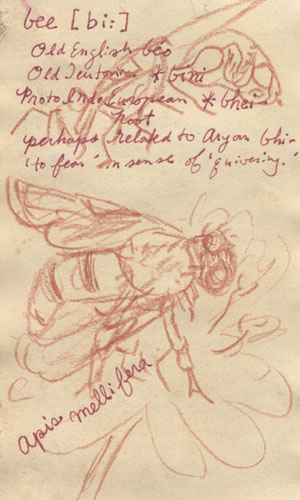 bee [bi:]
Old English bēo
Old Teutonic *bini
Proto Indo European *bhei
root
perhaps related to Aryan bhi-
'to fear' in sense of 'quivering.'
apis mellifera